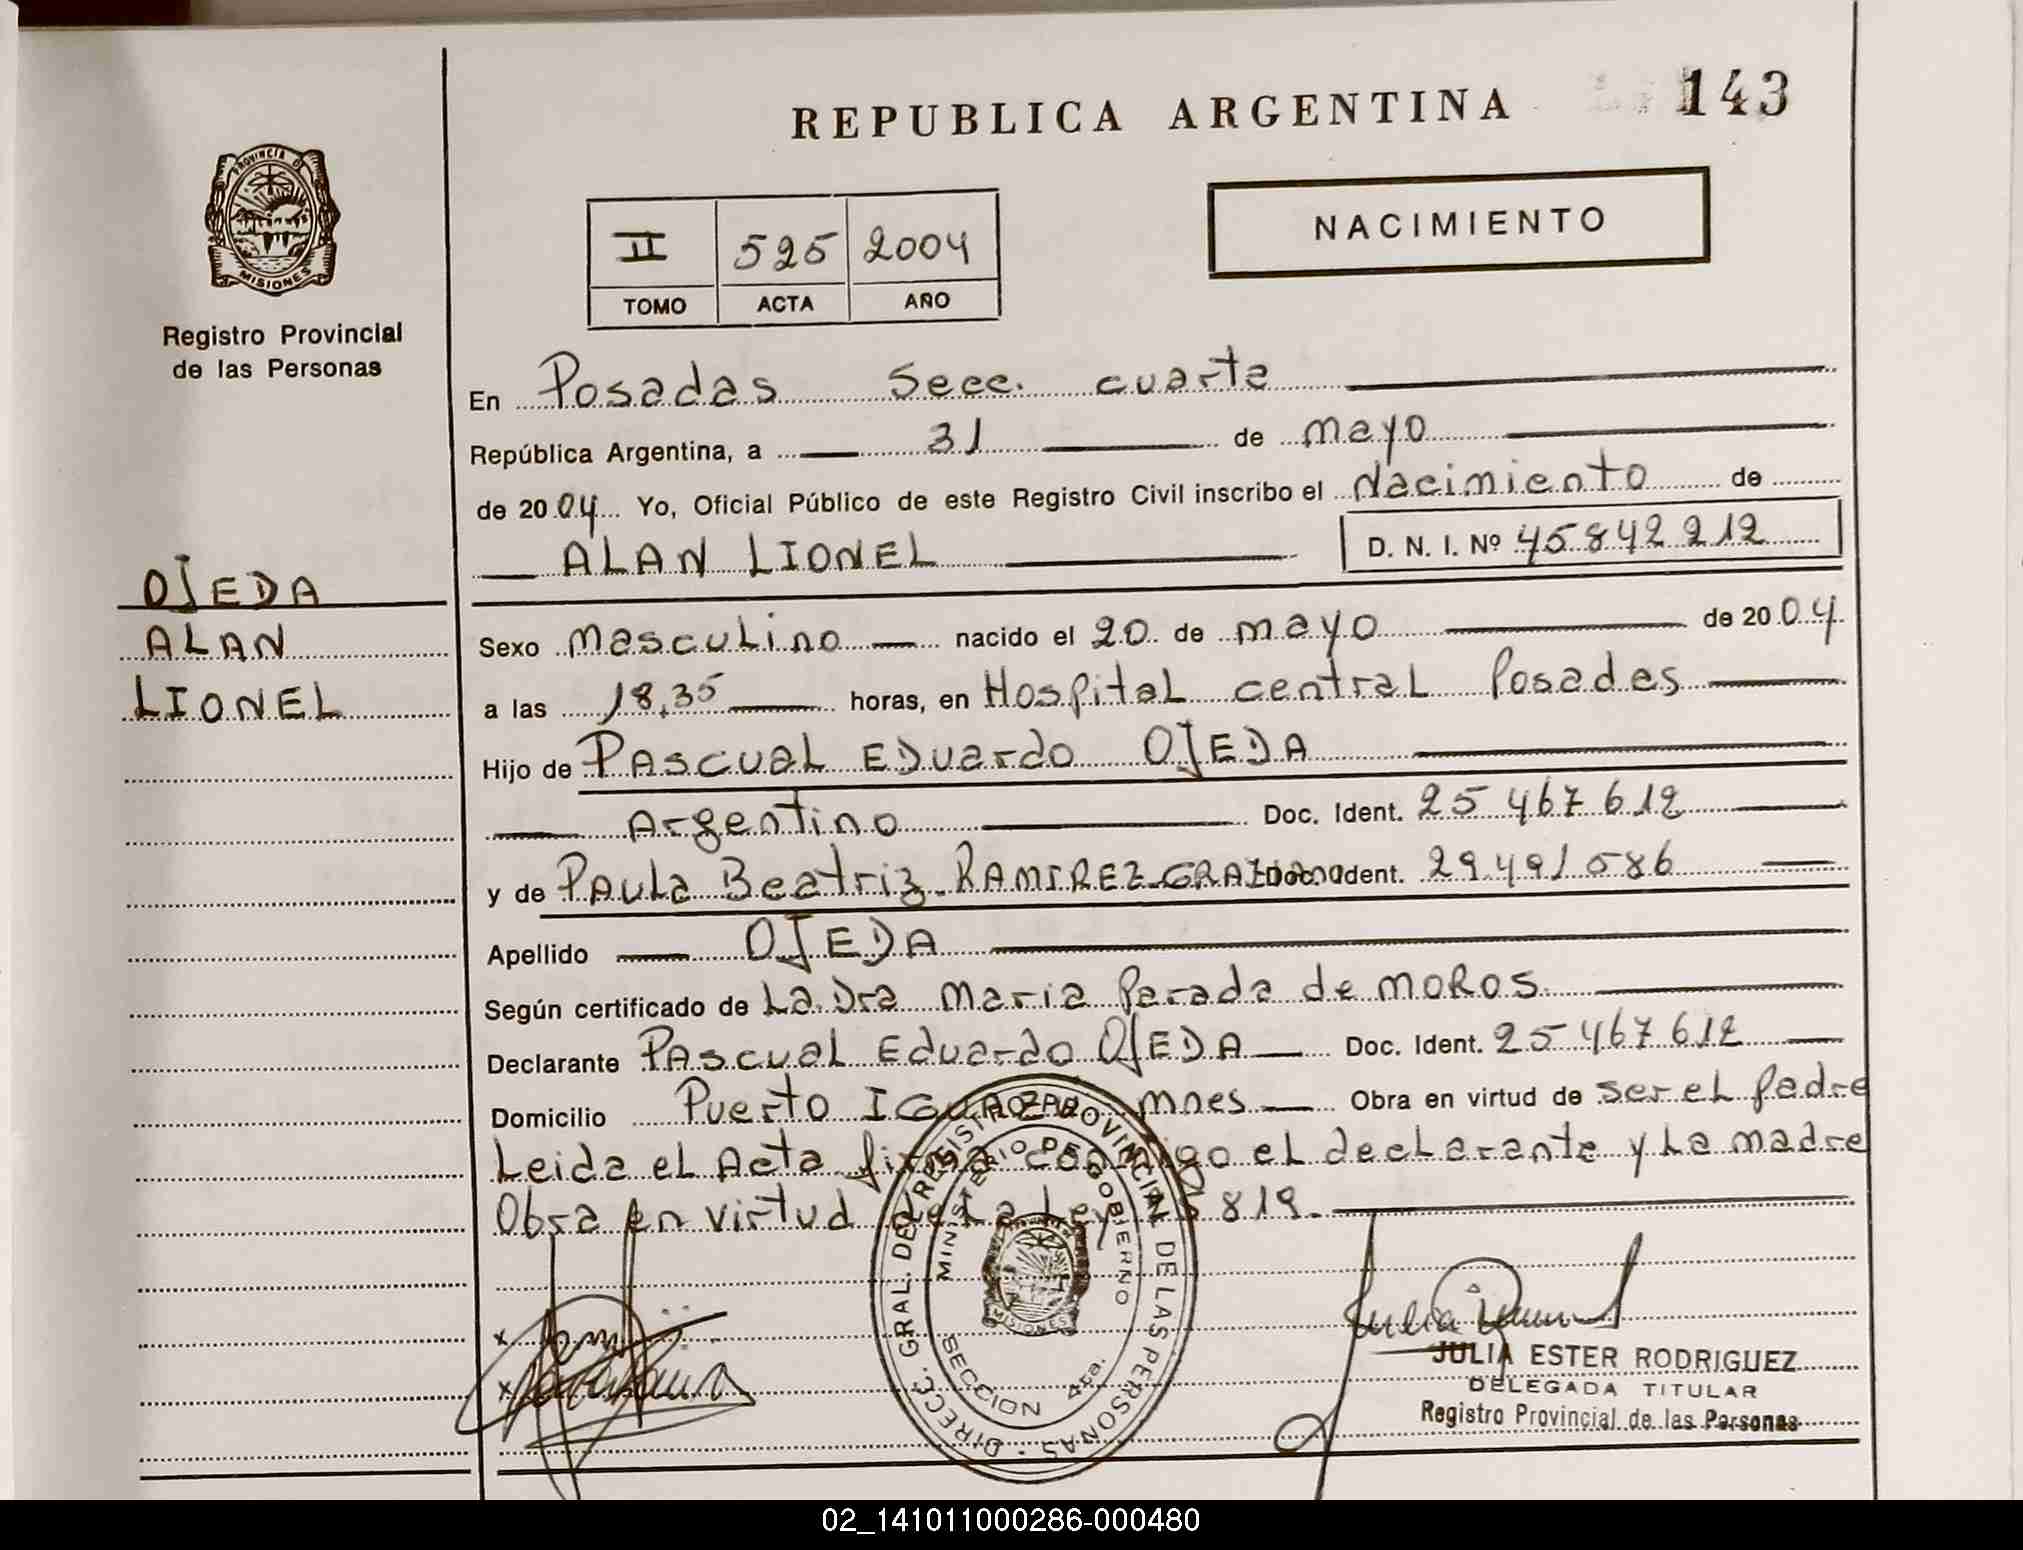 REPUBLICA ARGENTINA
143
PROVINCIA DE
MISIONES
Registro Provincial
de las Personas
II 525 2004
TOMO ACTA AÑO
NACIMIENTO
En Posadas Secc. cuarta
República Argentina, a 31 de mayo
de 2004 Yo, Oficial Público de este Registro Civil inscribo el Nacimiento de
ALAN LIONEL D. N. I. Nº 45842212
OJEDA
ALAN
LIONEL
Sexo Masculino nacido el 20 de mayo de 2004
a las 18,35 horas, en Hospital central Posadas
Hijo de PAscual EDuardo OJEDA
Argentino Doc. Ident. 25 467 612
y de PAula Beatriz RAMIREZ Ident. 29 491 586
Apellido OJEDA
Según certificado de La Dra Maria Parada de MOROS
Declarante PAscual Eduardo OJEDA Doc. Ident. 25 467 612
Domicilio Puerto IGUAZU mnes Obra en virtud de ser el padre
Leida el Acta firma conmigo el declarante y La madre
Obra en virtud de La Ley 819.
DIRECC. GRAL. DEL REGISTRO PROVINCIAL DE LAS PERSONAS
MINISTERIO DE GOBIERNO
SECCION 4ta.
MISIONES
x
x
JULIA ESTER RODRIGUEZ
DELEGADA TITULAR
Registro Provincial de las Personas
02_141011000286-000480